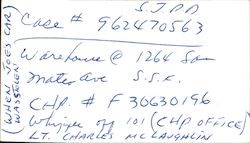 S.J.P.D
Case # 962470563
Warehouse @ 1264 San
Mateo Ave S.S.F.
CHP. # F30630196
Whipper off 101 (CHP OFFICE)
LT. CHARLES MCLAUGHLIN
(WHEN JOE'S CAR
WAS STOLEN)